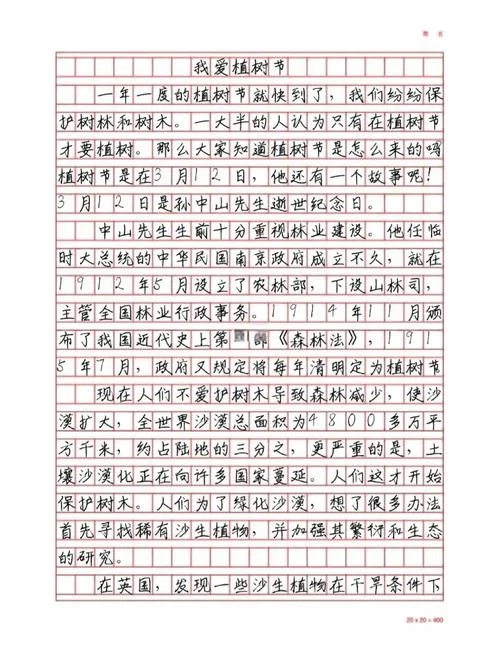 我爱植树节
一年一度的植树节就快到了，我们纷纷保
护树林和树木。一大半的人认为只有在植树节
才要植树。那么大家知道植树节是怎么来的吗
植树节是在3月12日，他还有一个故事呢！
3月12日是孙中山先生逝世纪念日。
中山先生生前十分重视林业建设。他任临
时大总统的中华民国南京政府成立不久，就在
1912年5月设立了农林部，下设山林司，
主管全国林业行政事务。1914年11月颁
布了我国近代史上第《森林法》，191
5年7月，政府又规定将每年清明定为植树节
现在人们不爱护树木导致森林减少，使沙
漠扩大，全世界沙漠总面积为4800多万平
方千米，约占陆地的三分之，更严重的是，土
壤沙漠化正在向许多国家蔓延。人们这才开始
保护树木。人们为了绿化沙漠，想了很多办法
首先寻找稀有沙生植物，并加强其繁衍和生态
的研究。
在英国，发现一些沙生植物在干旱条件下
20×20=400